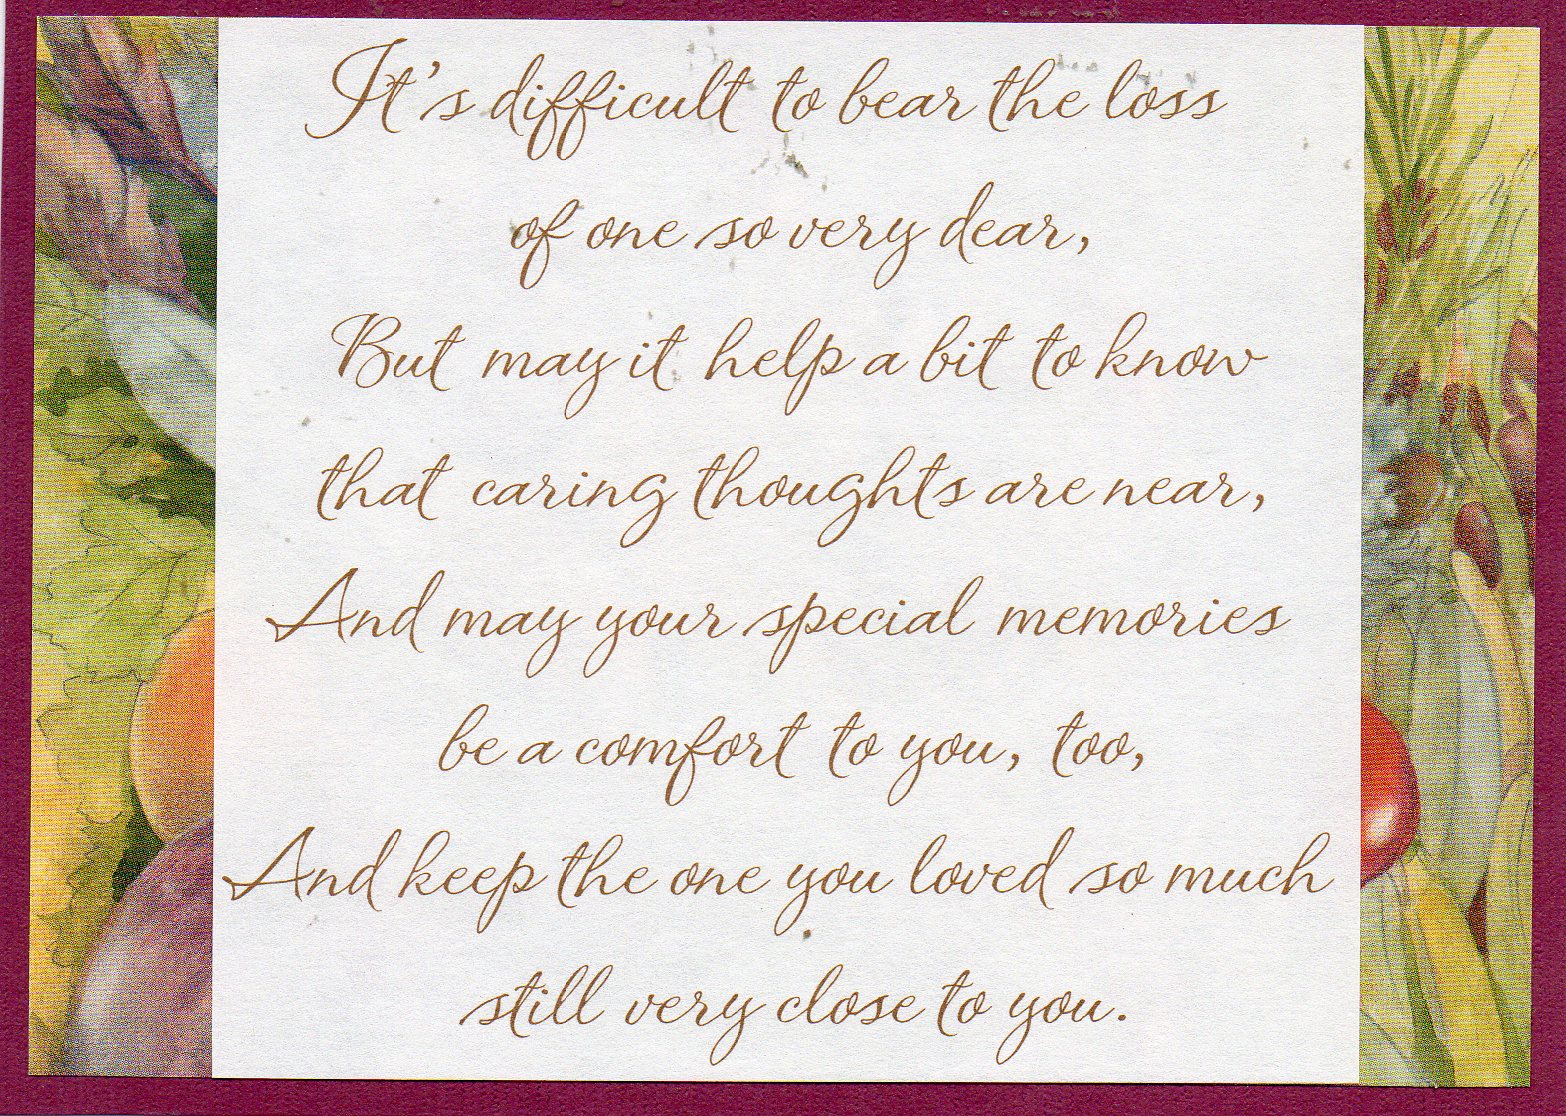 It's difficult to bear the loss
of one so very dear,
But may it help a bit to know
that caring thoughts are near,
And may your special memories
be a comfort to you, too,
And keep the one you loved so much
still very close to you.